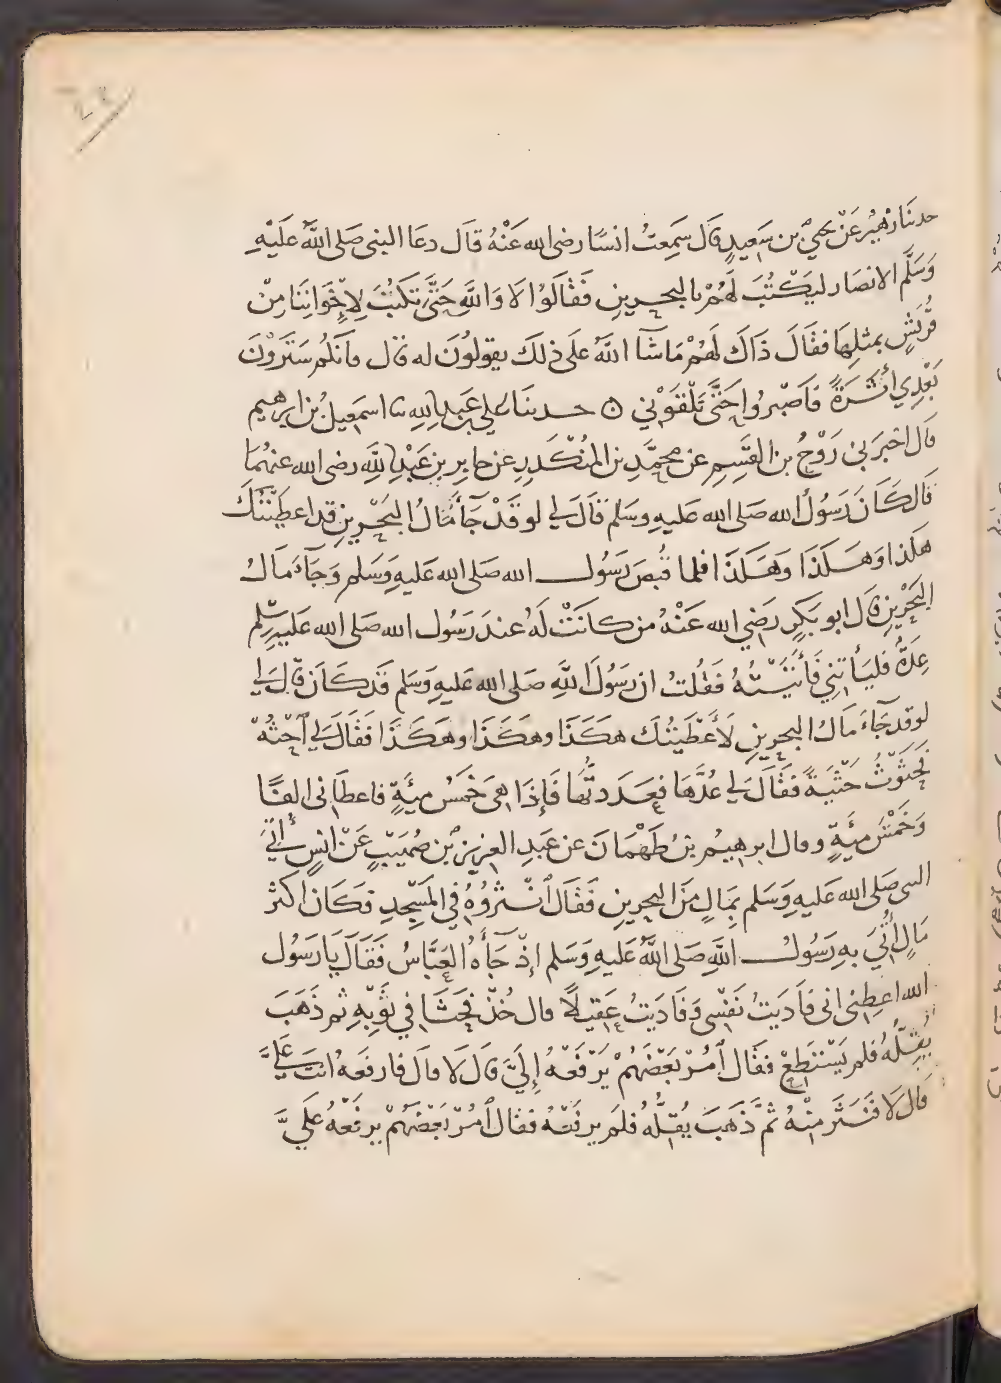 ٢٤
حدثنا زهير عن يحيى بن سعيد قال سَمِعتُ انسًا رضى الله عَنْهُ قال دعا النبى صَلى اللهُ عَلَيْهِ
وَسَلَّم الانصار ليَكْتُبَ لَهُمْ بالبحرين فَقَالُوا لا وَاللهِ حَتَّى تكتُبَ لإِخوَانِنَا مِنْ
قُرَيْشٍ بمثلِهَا فقَالَ ذَاكَ لَهُمْ مَا شَآ اللهُ عَلى ذلِكَ يقولُونَ له قال فانكُم سَتَرَوْنَ
بَعْدِي أُثَرَةً فَاصْبرُوا حَتَّى تَلْقَوْنِي ۝ حدثنا علي بن عَبدِ اللهِ ثنا اسمَعِيلُ بْنُ ابرهيم
قال اخبرَنى رَوْحُ بن القَسِمِ عن محمَّدِ بن المُنكَدِرِ عن جابِرِ بنِ عَبْدِ اللهِ رضى الله عنهُمَا
قَال كَانَ رَسُولُ الله صَلى الله عَليهِ وسَلم قالَ لي لو قَدْ جَآءَ مَالُ البَحْرينِ قد اعطَيْتُكَ
هكذا وَهَكَذَا وَهَكَذَا فلما قُبِضَ رَسُول الله صَلى الله عَليهِ وَسَلم وَجَآءَ مَالُ
البَحْرينِ قال ابو بَكرٍ رَضي الله عَنْهُ من كانَتْ لَهُ عندَ رَسُول الله صَلى الله عَليهِ وسلم
عِدَةٌ فليَأتِنِي فَأتَيْتُهُ فَقُلتُ ان رَسُولَ اللهِ صَلى الله عَليهِ وَسَلم قَد كَانَ قالَ لِي
لو قد جَآءَ مَالُ البحرينِ لَأَعْطَيْتُكَ هكَذَا وهكَذَا وهكَذَا فقَالَ لي احْثُهْ
فَحَثَوْتُ حَثْيَةً فقَالَ لي عُدَّهَا فعَدَدتُّهَا فَإِذَا هىَ خَمْسُ مِيَّةٍ فاعطَانى الفًا
وَخَمْسَ مِيَّةٍ وقال ابرهيمُ بنُ طَهْمَانَ عن عَبدِ العزيزِ بن صُهَيْبٍ عَنْ انسٍ أُتِيَ
النبى صَلى الله عَليهِ وَسَلم بمَالٍ مِنَ البحرينِ فَقَالَ انْثُرُوهُ فِي المَسْجِدِ فكَانَ اكثرَ
مَالٍ أُتِيَ بهِ رَسُولُ اللهِ صَلى اللهُ عَليهِ وَسَلم إذْ جَآءَهُ العَبَّاسُ فقَالَ يَا رَسُول
الله اعطِنى انى فَادَيتُ نَفْسى وَفَادَيتُ عَقِيلًا قال خُذْ فحَثَا فِي ثَوْبِهِ ثم ذَهَبَ
يُقِلُّهُ فلم يَسْتَطِعْ فقَال اْمُرْ بَعْضَهُمْ يَرْفَعْهُ إِلَيَّ قَالَ لَا قالَ فارفَعهُ انتَ عَلَيَّ
قَالَ لا فنَثَرَ مِنْهُ ثُمَّ ذَهَبَ يُقِلُّهُ فلَم يرفَعْهُ فقَال اْمُرْ بَعْضَهُمْ يرفَعْهُ عَلَيَّ